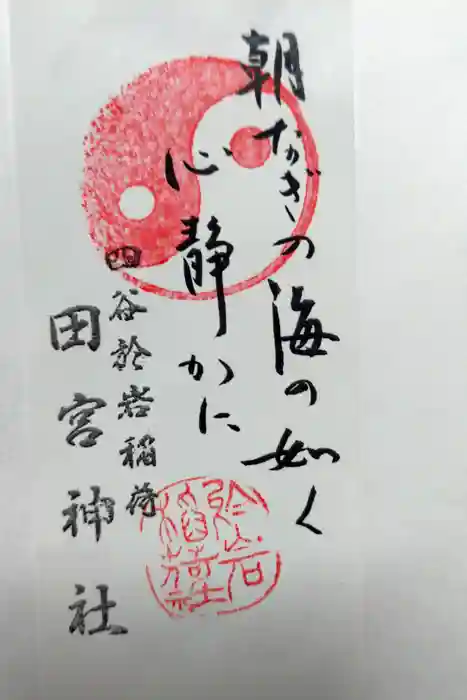 朝なぎの海の如く
心静かに
四谷於岩稲荷
田宮神社
於岩稲荷社